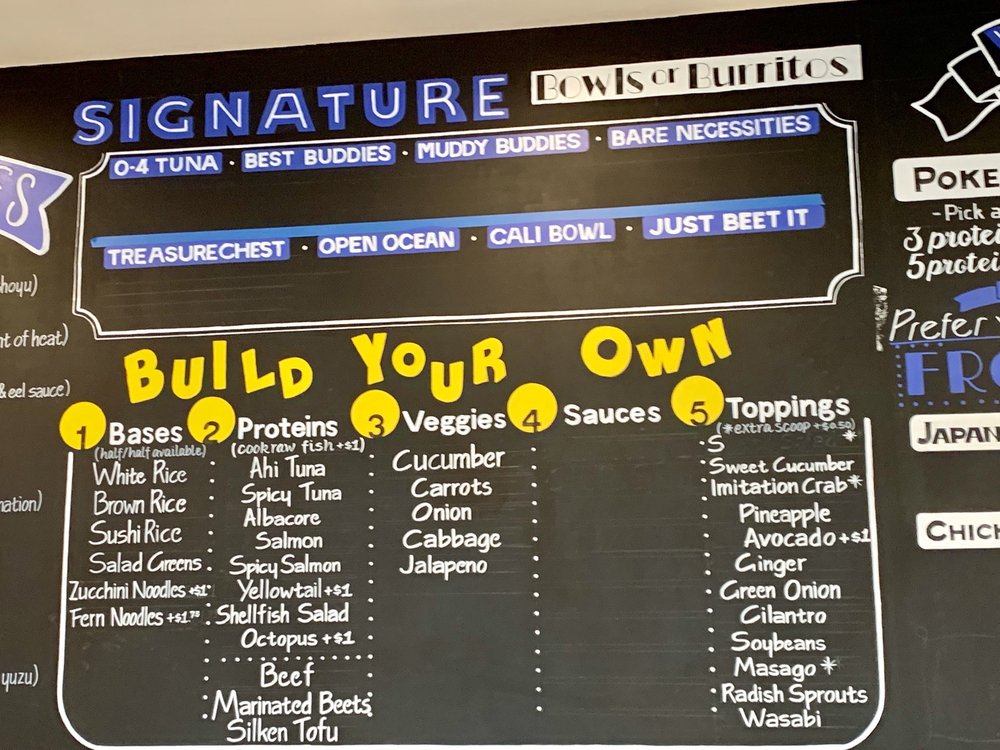 SIGNATURE Bowls or Burritos
O-4 TUNA · BEST BUDDIES · MUDDY BUDDIES · BARE NECESSITIES
TREASURECHEST · OPEN OCEAN · CALI BOWL · JUST BEET IT
hoyu)
nt of heat)
& eel sauce)
nation)
yuzu)
BUILD YOUR OWN
1 Bases
(half/half available)
White Rice
Brown Rice
Sushi Rice
Salad Greens
Zucchini Noodles +$1
Fern Noodles +$1.75
2 Proteins
(cook raw fish +$1)
Ahi Tuna
Spicy Tuna
Albacore
Salmon
Spicy Salmon
Yellowtail +$1
Shellfish Salad
Octopus +$1
Beef
Marinated Beets
Silken Tofu
3 Veggies
Cucumber
Carrots
Onion
Cabbage
Jalapeno
4 Sauces
5 Toppings
(*extra scoop +$0.50)
S *
Sweet Cucumber
Imitation Crab*
Pineapple
Avocado +$1
Ginger
Green Onion
Cilantro
Soybeans
Masago *
Radish Sprouts
Wasabi
POKE
- Pick a
3 protei
5 protei
Prefer
FRO
JAPAN
CHICK